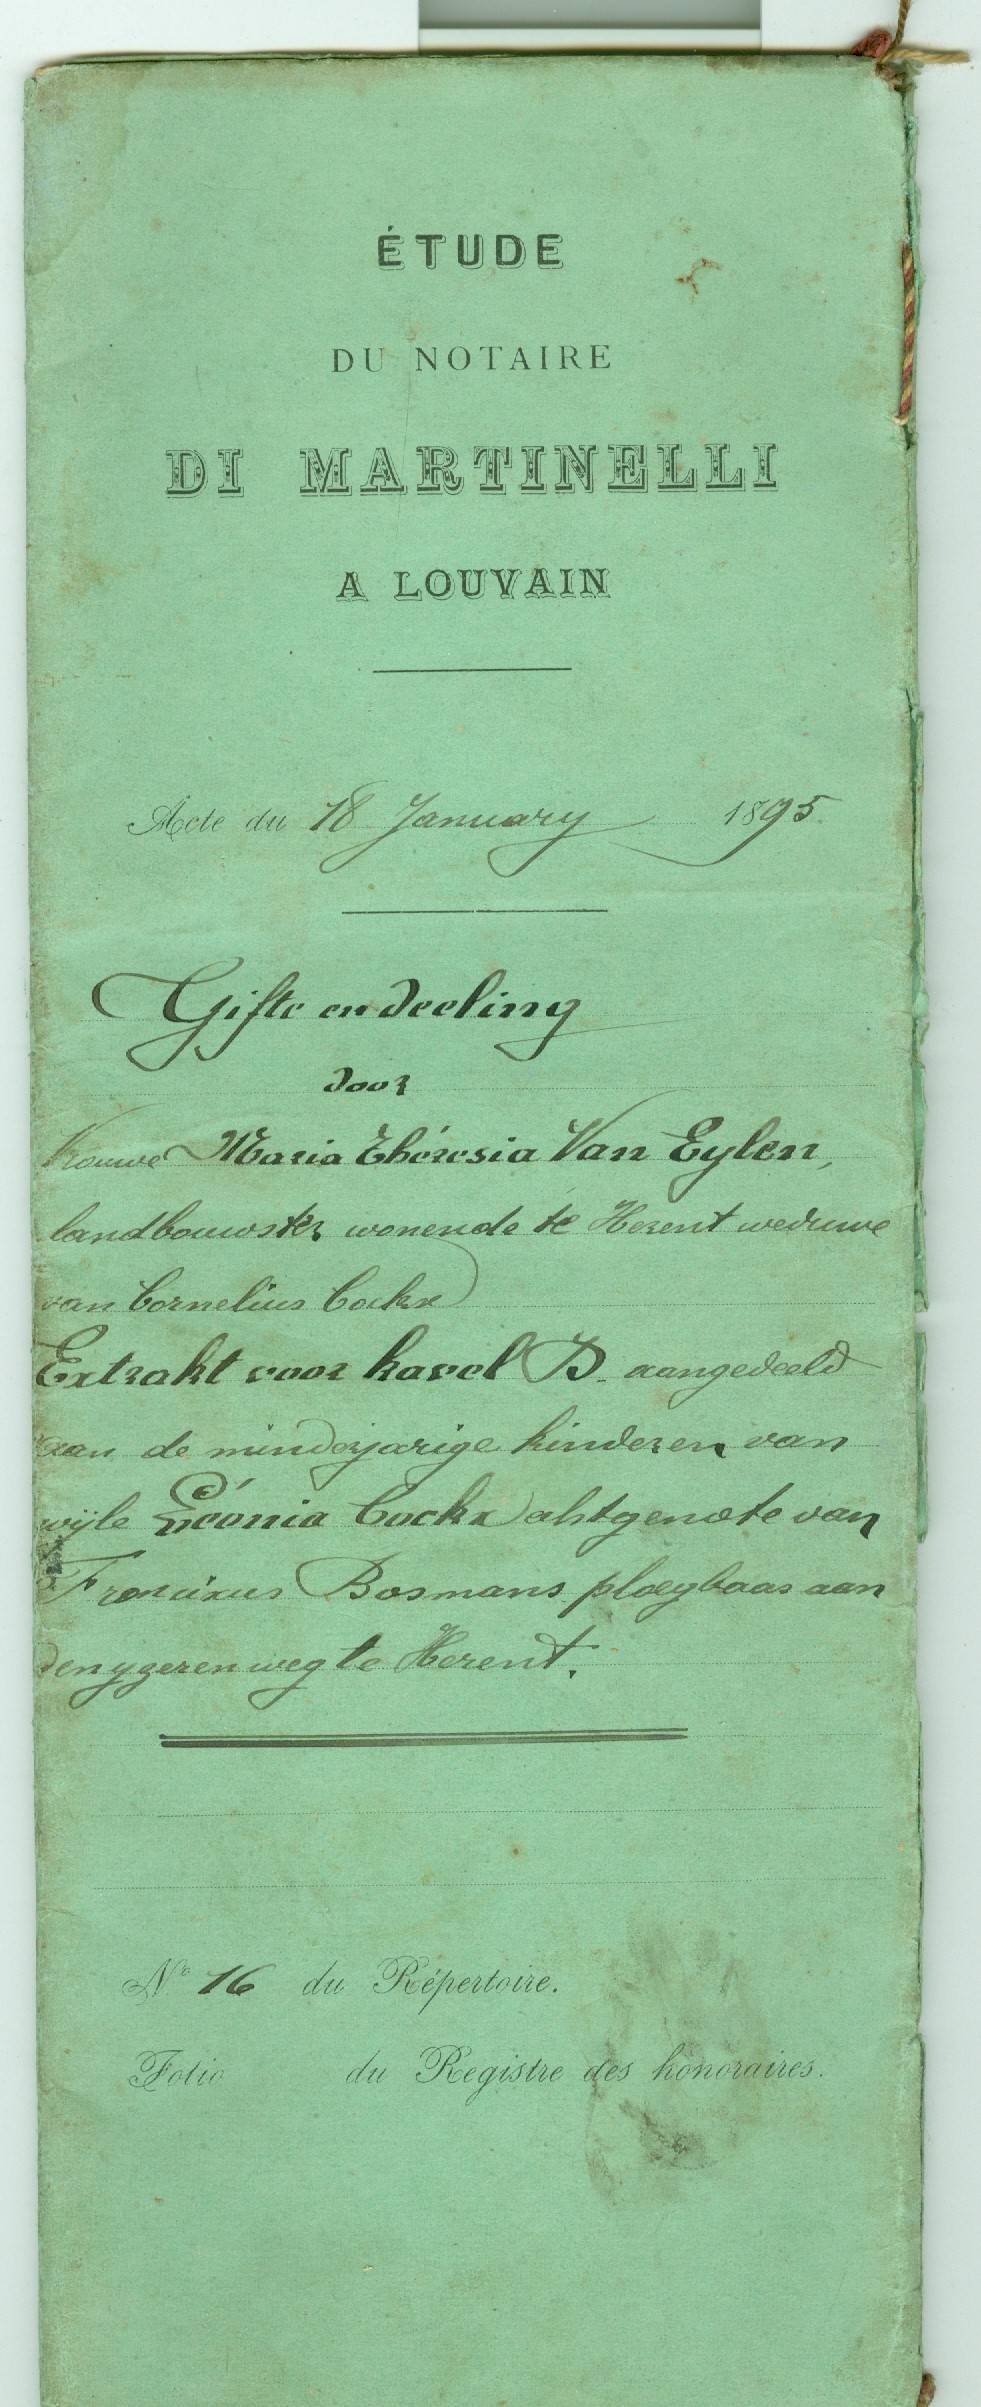 ÉTUDE
DU NOTAIRE
DI MARTINELLI
A LOUVAIN
Acte du 18 January 1895.
Gifte en deeling
door
Vrouwe Maria Théresia Van Eylen,
landbouwster wonende te Herent weduwe
van Cornelius Cockx
Extrakt voor kavel B. aangedeeld
aan de minderjarige kinderen van
wijle Léonia Cockx echtgenote van
Franciscus Bosmans ploegbaas aan
den yzeren weg te Herent.
No 16 du Répertoire.
Folio du Registre des honoraires.